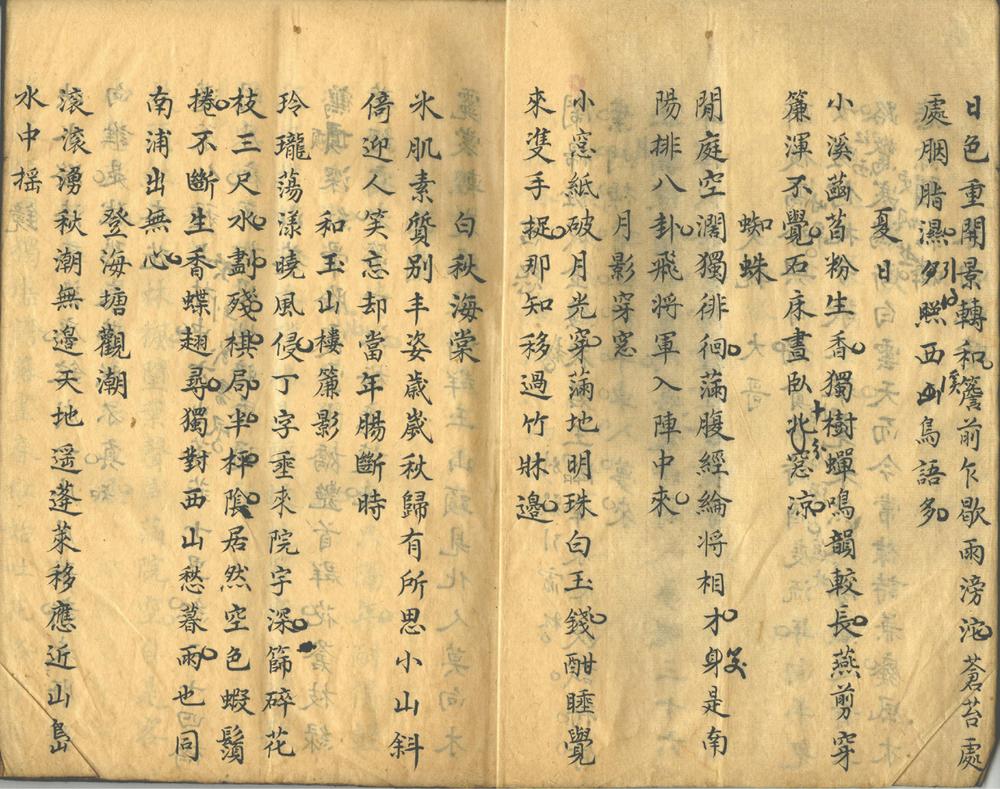 日色重開景轉和簷前乍歇雨滂沱蒼苔處
處胭脂濕夕照西山鳥語多
夏日
小溪菡萏粉生香獨樹蟬鳴韻較長燕剪穿
簾渾不覺石床晝臥北窓涼
蜘蛛
閒庭空濶獨徘徊滿腹經綸將相才身是南
陽排八卦飛將軍入陣中來
月影穿窓
小窓紙破月光穿滿地明珠白玉錢酣睡覺
來雙手捉那知移過竹牀邊
白秋海棠
氷肌素質別丰姿歲歲秋歸有所思小山斜
倚迎人笑忘却當年腸斷時
和玉山樓簾影
玲瓏蕩漾曉風侵丁字垂來院宇深篩碎花
枝三尺水劃殘棋局半枰陰居然空色蝦鬚
捲不斷生香蝶翅尋獨對西山愁暮雨也同
南浦出無心
登海塘觀潮
滾滾湧秋潮無邊天地遥蓬萊移應近山島
水中摇